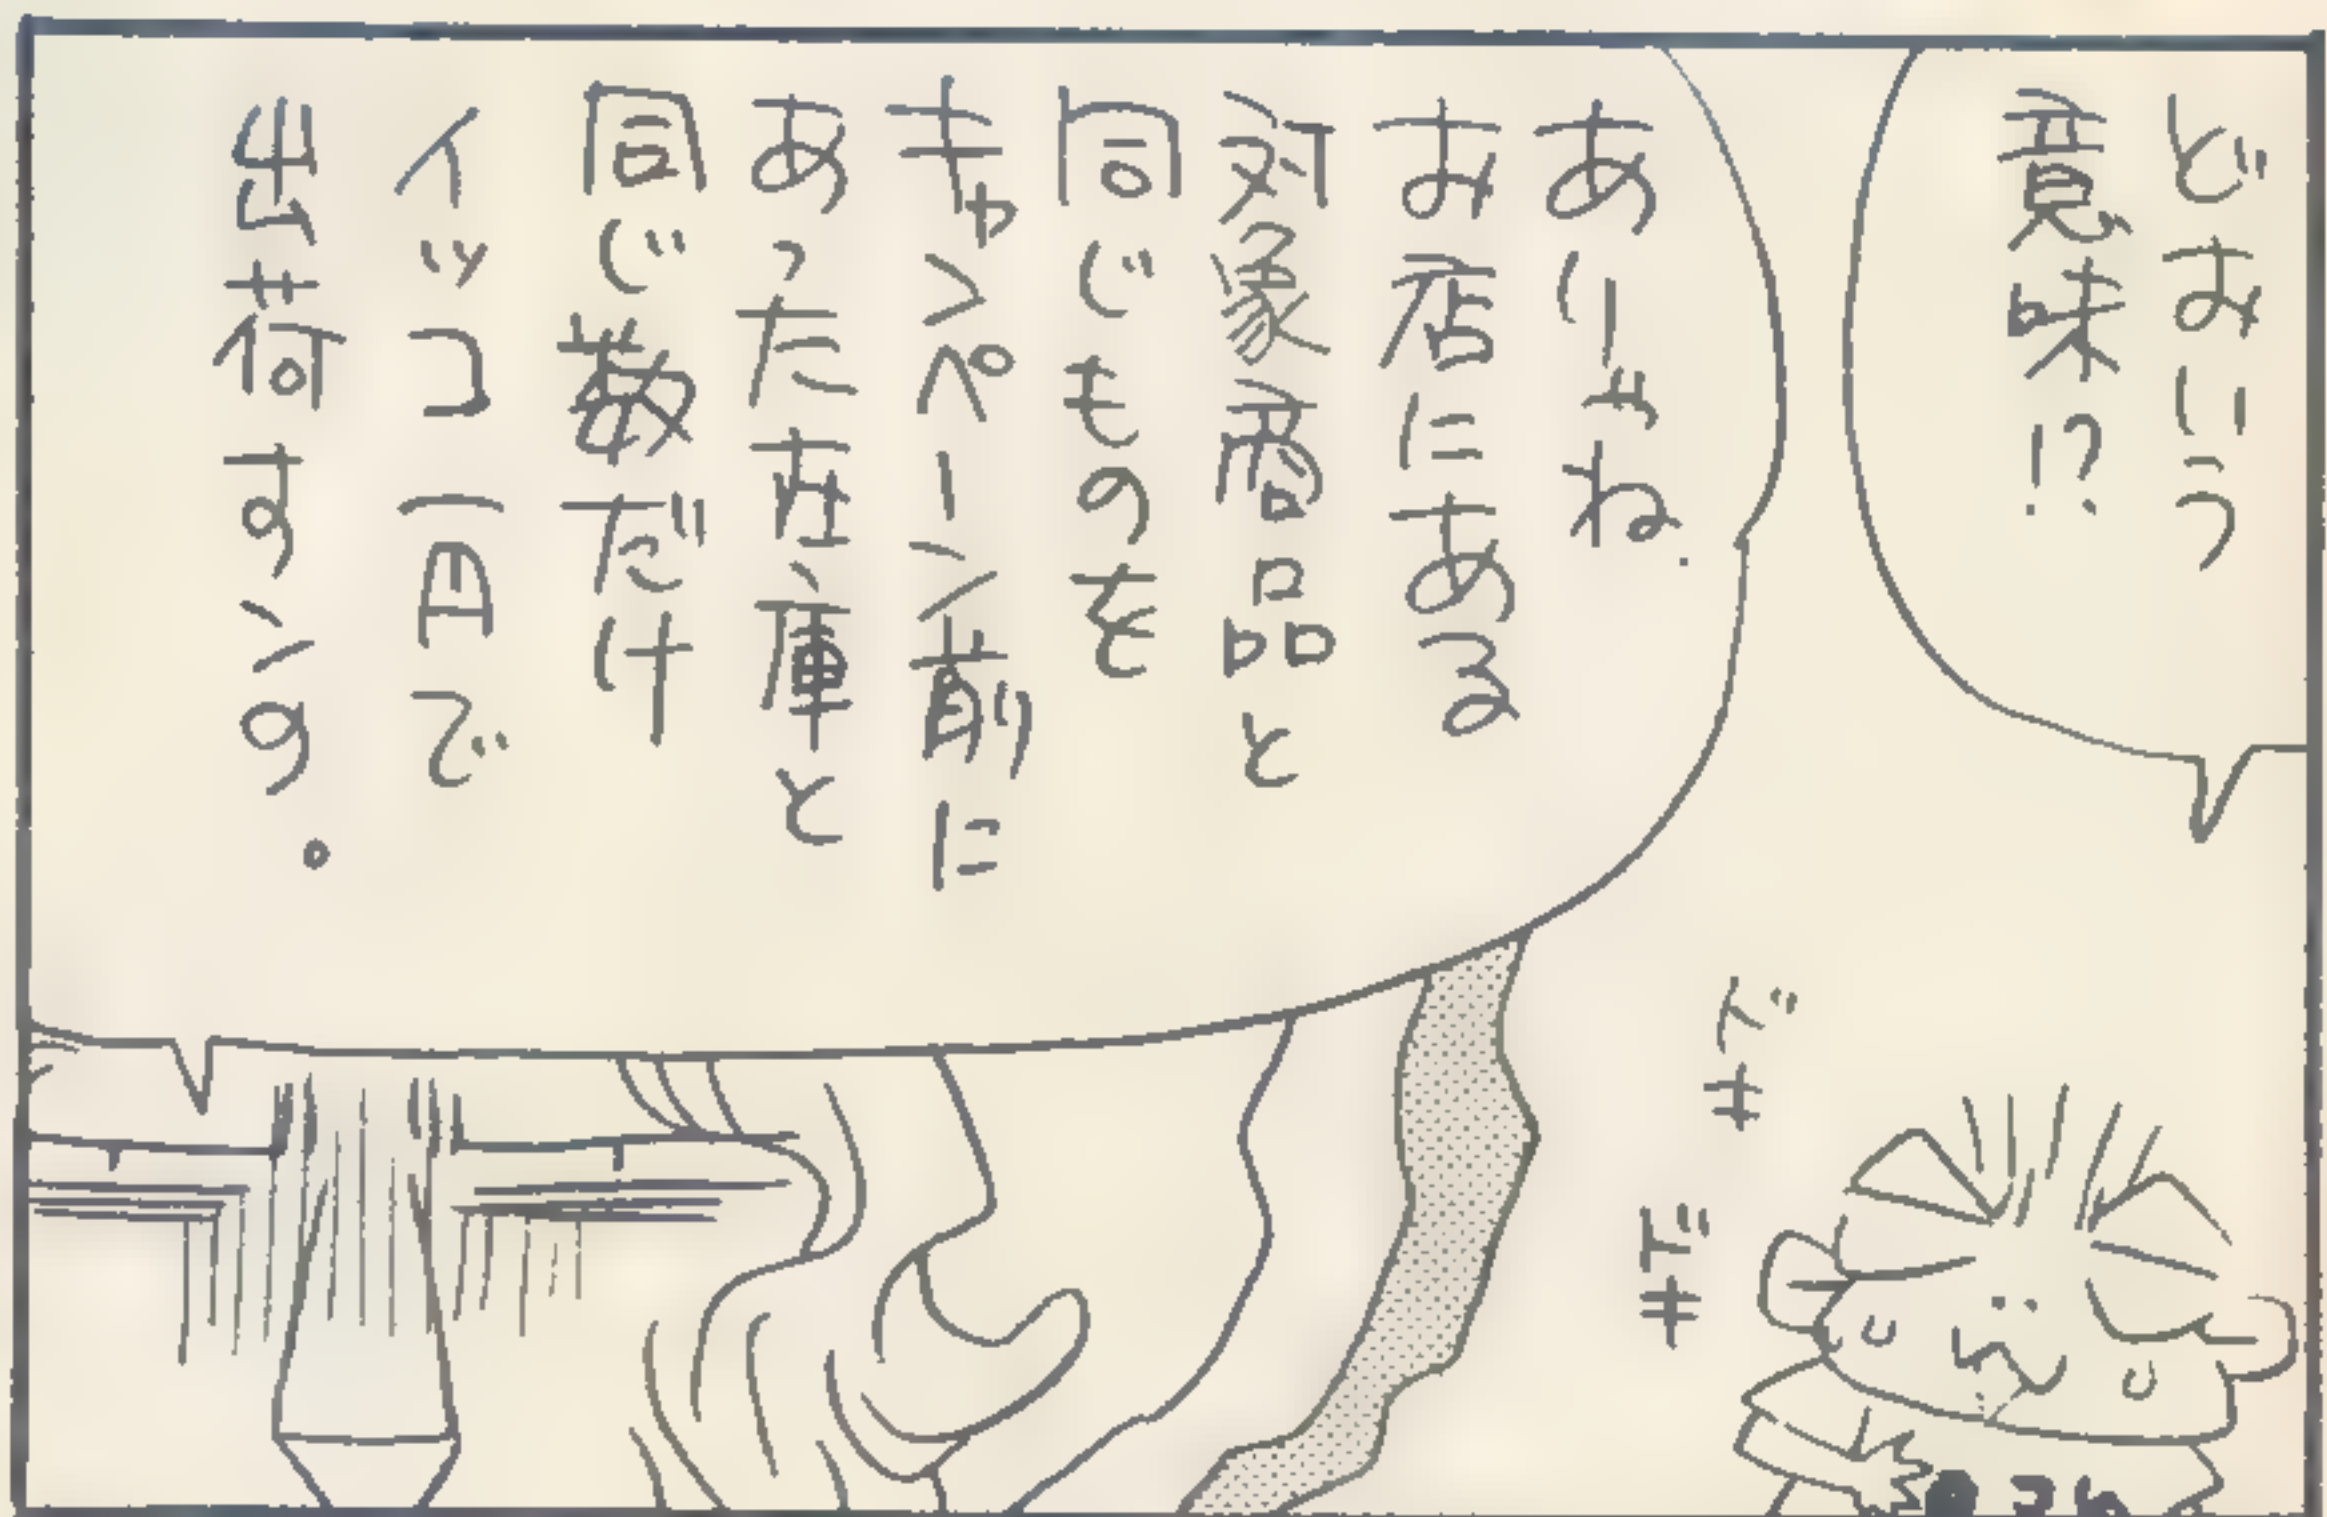 どおいう
意味!?
ありょね.
お店にある
対象商品と
同じものを
キャンペーン前に
あった在庫と
同じ数だけ
イッコ一円で
出荷すンの。
ドキ
ドキ